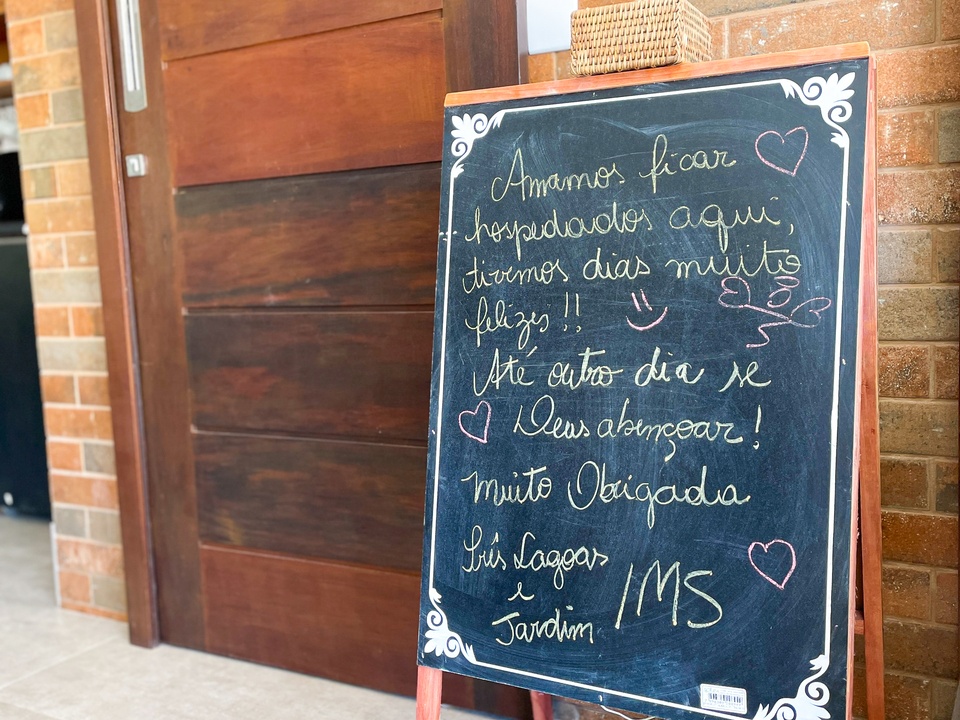 Amamos ficar
hospedados aqui,
tivemos dias muito
felizes !!
Até outro dia se
Deus abençoar!
Muito Obrigada
Três Lagoas
e
Jardim /MS